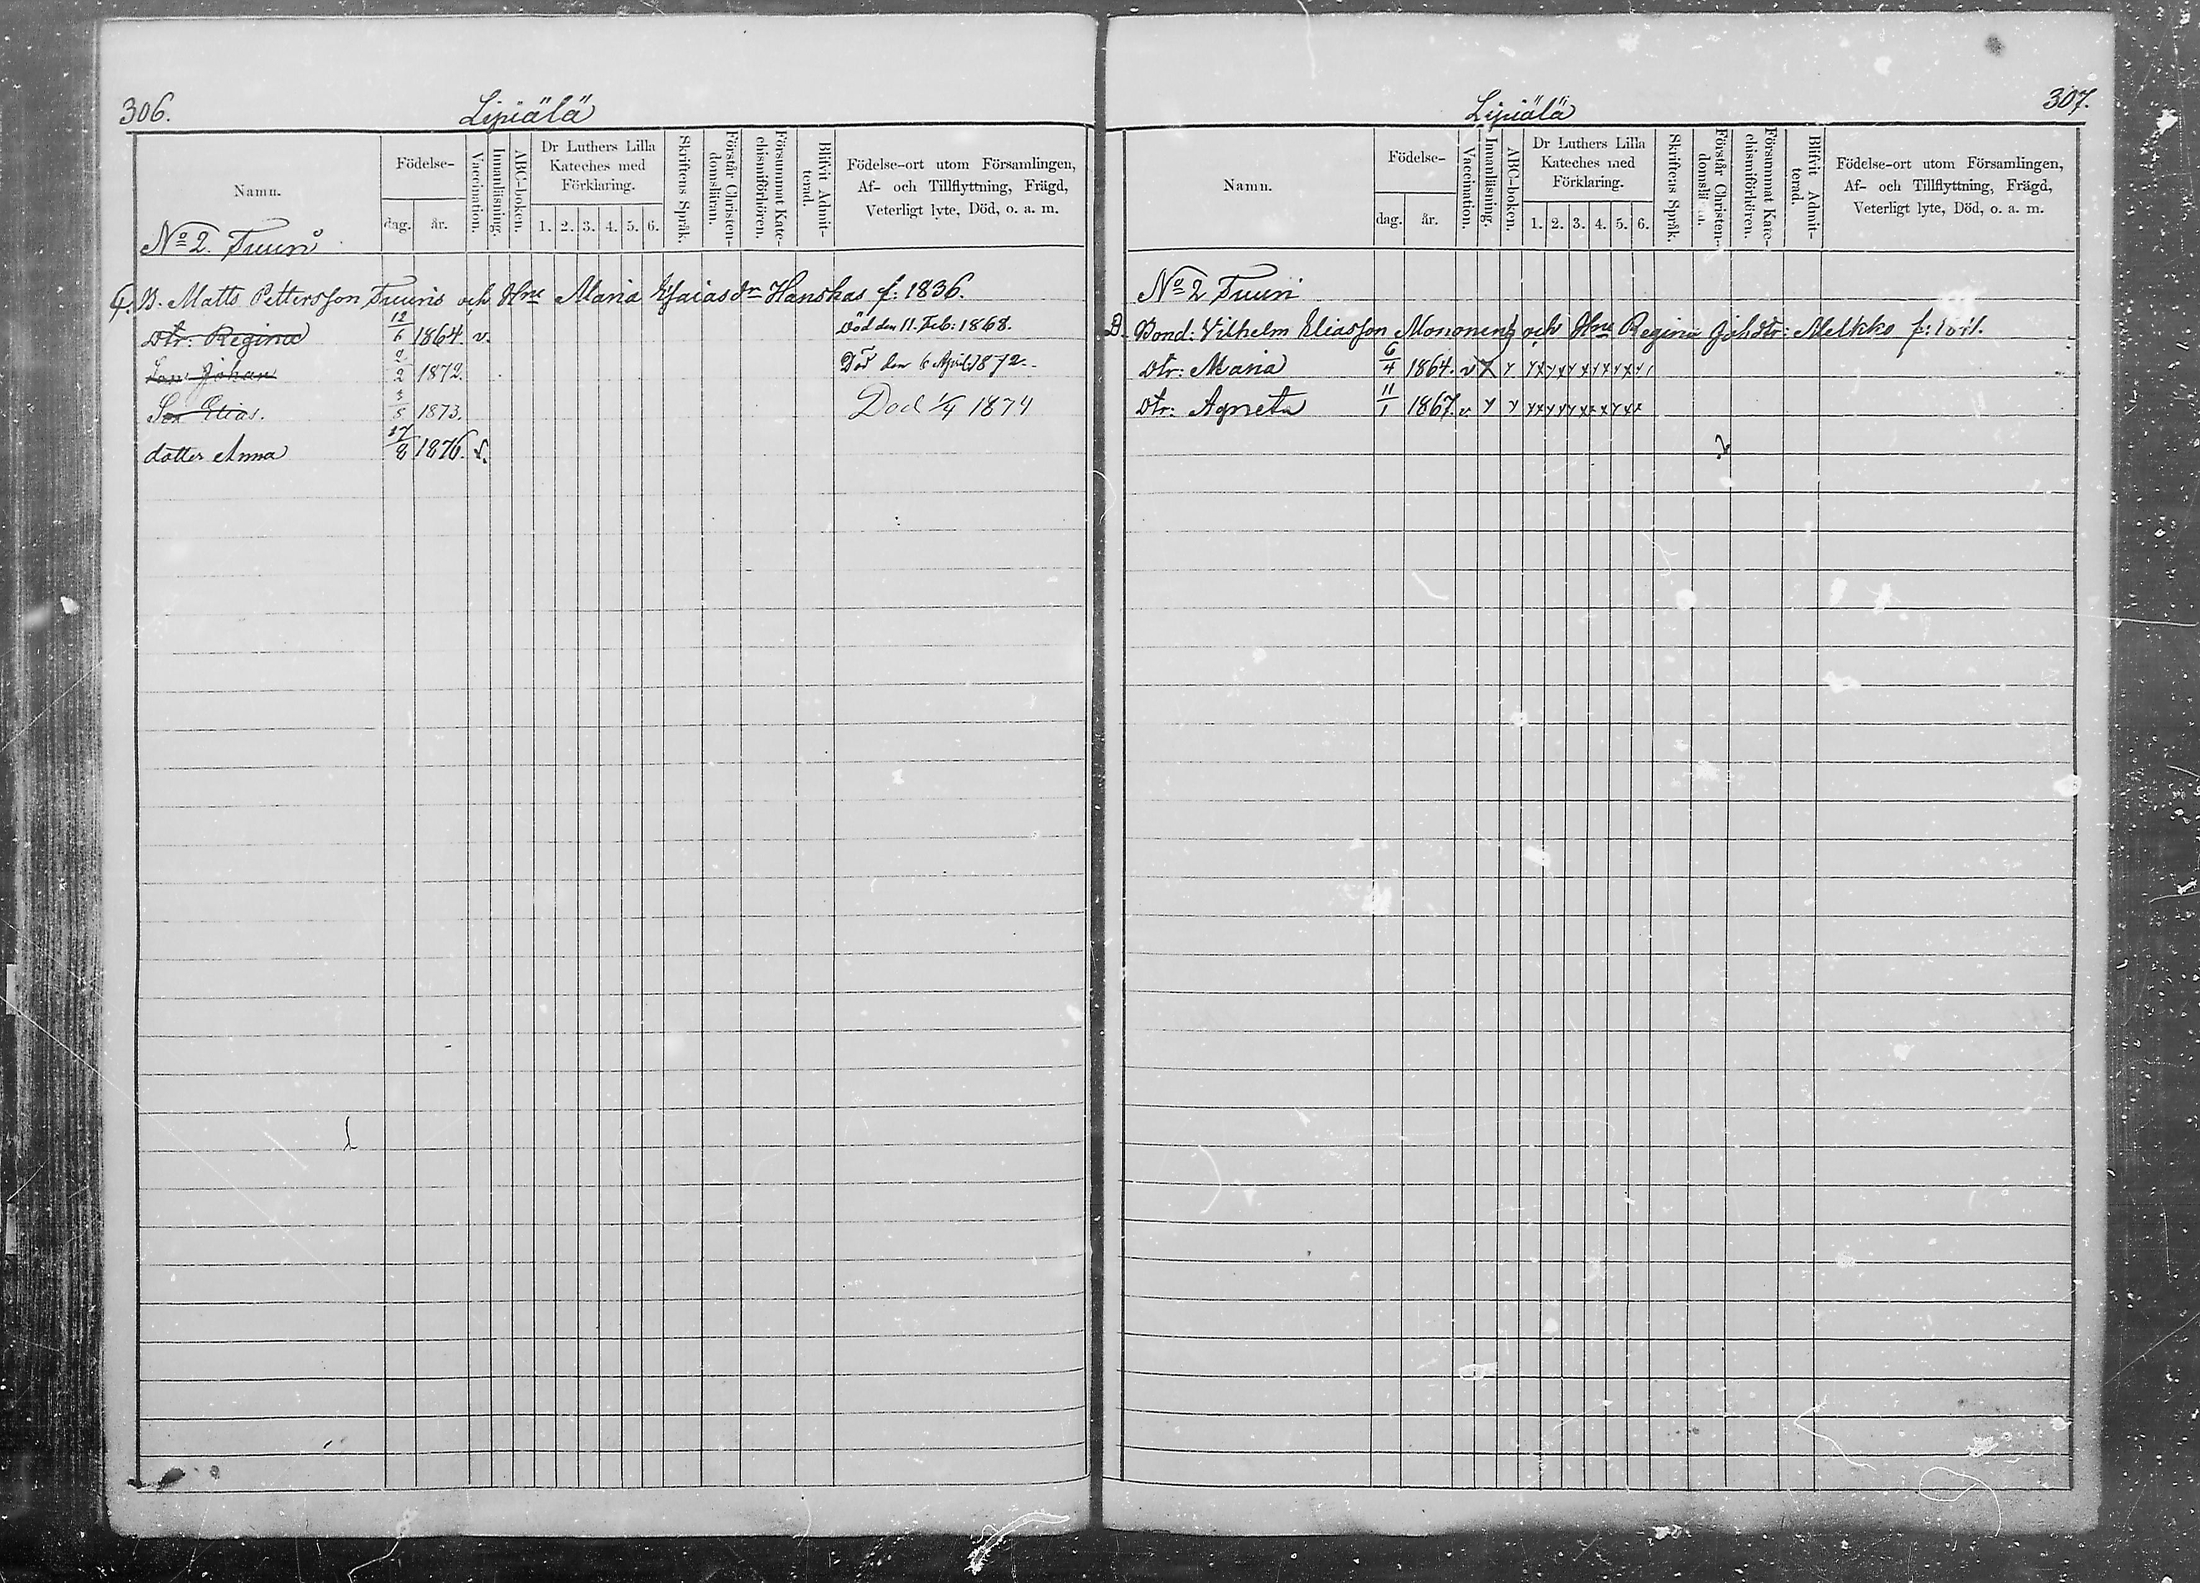 306.
Lipiälä
Namn.
Födelse-
dag.
år.
Vaccination.
Innanläsning.
ABC-boken.
Dr Luthers Lilla
Kateches med
Förklaring.
1. 2. 3. 4. 5. 6.
Skriftens Språk.
Förstår Christen-
domsläran.
Försummat Kate-
chismiförhören.
Blifvit Admit-
terad.
Födelse-ort utom Församlingen,
Af- och Tillflyttning, Frägd,
Veterligt lyte, Död, o. a. m.
No 2. Tuuri
B. Matts Pettersson Tuuris och Hne Maria Esaiasdr Hanskas f: 1836.
Dtr: Regina 12/6 1864. v. Död den 11. Feb: 1868.
Son Johan 2/2 1872. Död den 6 April 1872.
Son Elias. 3/8 1873. Död 1/4 1874
dotter Anna 17/8 1876. v.
307.
Lipiälä
Namn.
Födelse-
dag.
år.
Vaccination.
Innanläsning.
ABC-boken.
Dr Luthers Lilla
Kateches med
Förklaring.
1. 2. 3. 4. 5. 6.
Skriftens Språk.
Förstår Christen-
Försummat Kate-
chismiförhören.
Blifvit Admit-
terad.
Födelse-ort utom Församlingen,
Af- och Tillflyttning, Frägd,
Veterligt lyte, Död, o. a. m.
No 2 Tuuri
D. Bond: Vilhelm Eliasson Mononen och Hne Regina Johdtr: Melkko f:
Dtr: Maria 6/4 1864. v
Dtr: Agneta 11/1 1867. v